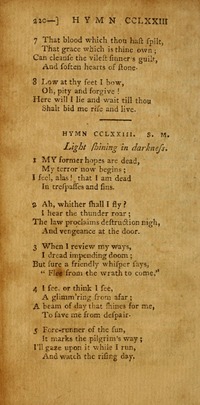 220—] HYMN CCLXXIII
7 That blood which thou hast spilt,
That grace which is thine own;
Can cleanse the vilest sinner's guilt,
And soften hearts of stone.
8 Low at thy feet I bow,
Oh, pity and forgive!
Here will I lie and wait till thou
Shalt bid me rise and live.
HYMN CCLXXIII. S. M.
Light shining in darkness.
1 MY former hopes are dead,
My terror now begins;
I feel, alas! that I am dead
In trespasses and sins.
2 Ah, whither shall I fly?
I hear the thunder roar;
The law proclaims destruction nigh,
And vengeance at the door.
3 When I review my ways,
I dread impending doom;
But sure a friendly whisper says,
"Flee from the wrath to come."
4 I see, or think I see,
A glimm'ring from afar;
A beam of day that shines for me,
To save me from despair.
5 Fore-runner of the sun,
It marks the pilgrim's way;
I'll gaze upon it while I run,
And watch the rising day.